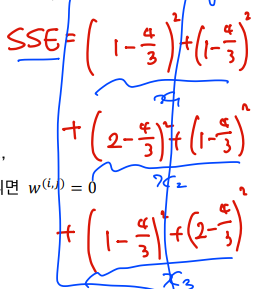 SSE = (1-4/3)² + (1-4/3)²
x₁
+ (2-4/3)² + (1-4/3)²
,
x₂
면 w^(i,j) = 0
+ (1-4/3)² + (2-4/3)²
x₃